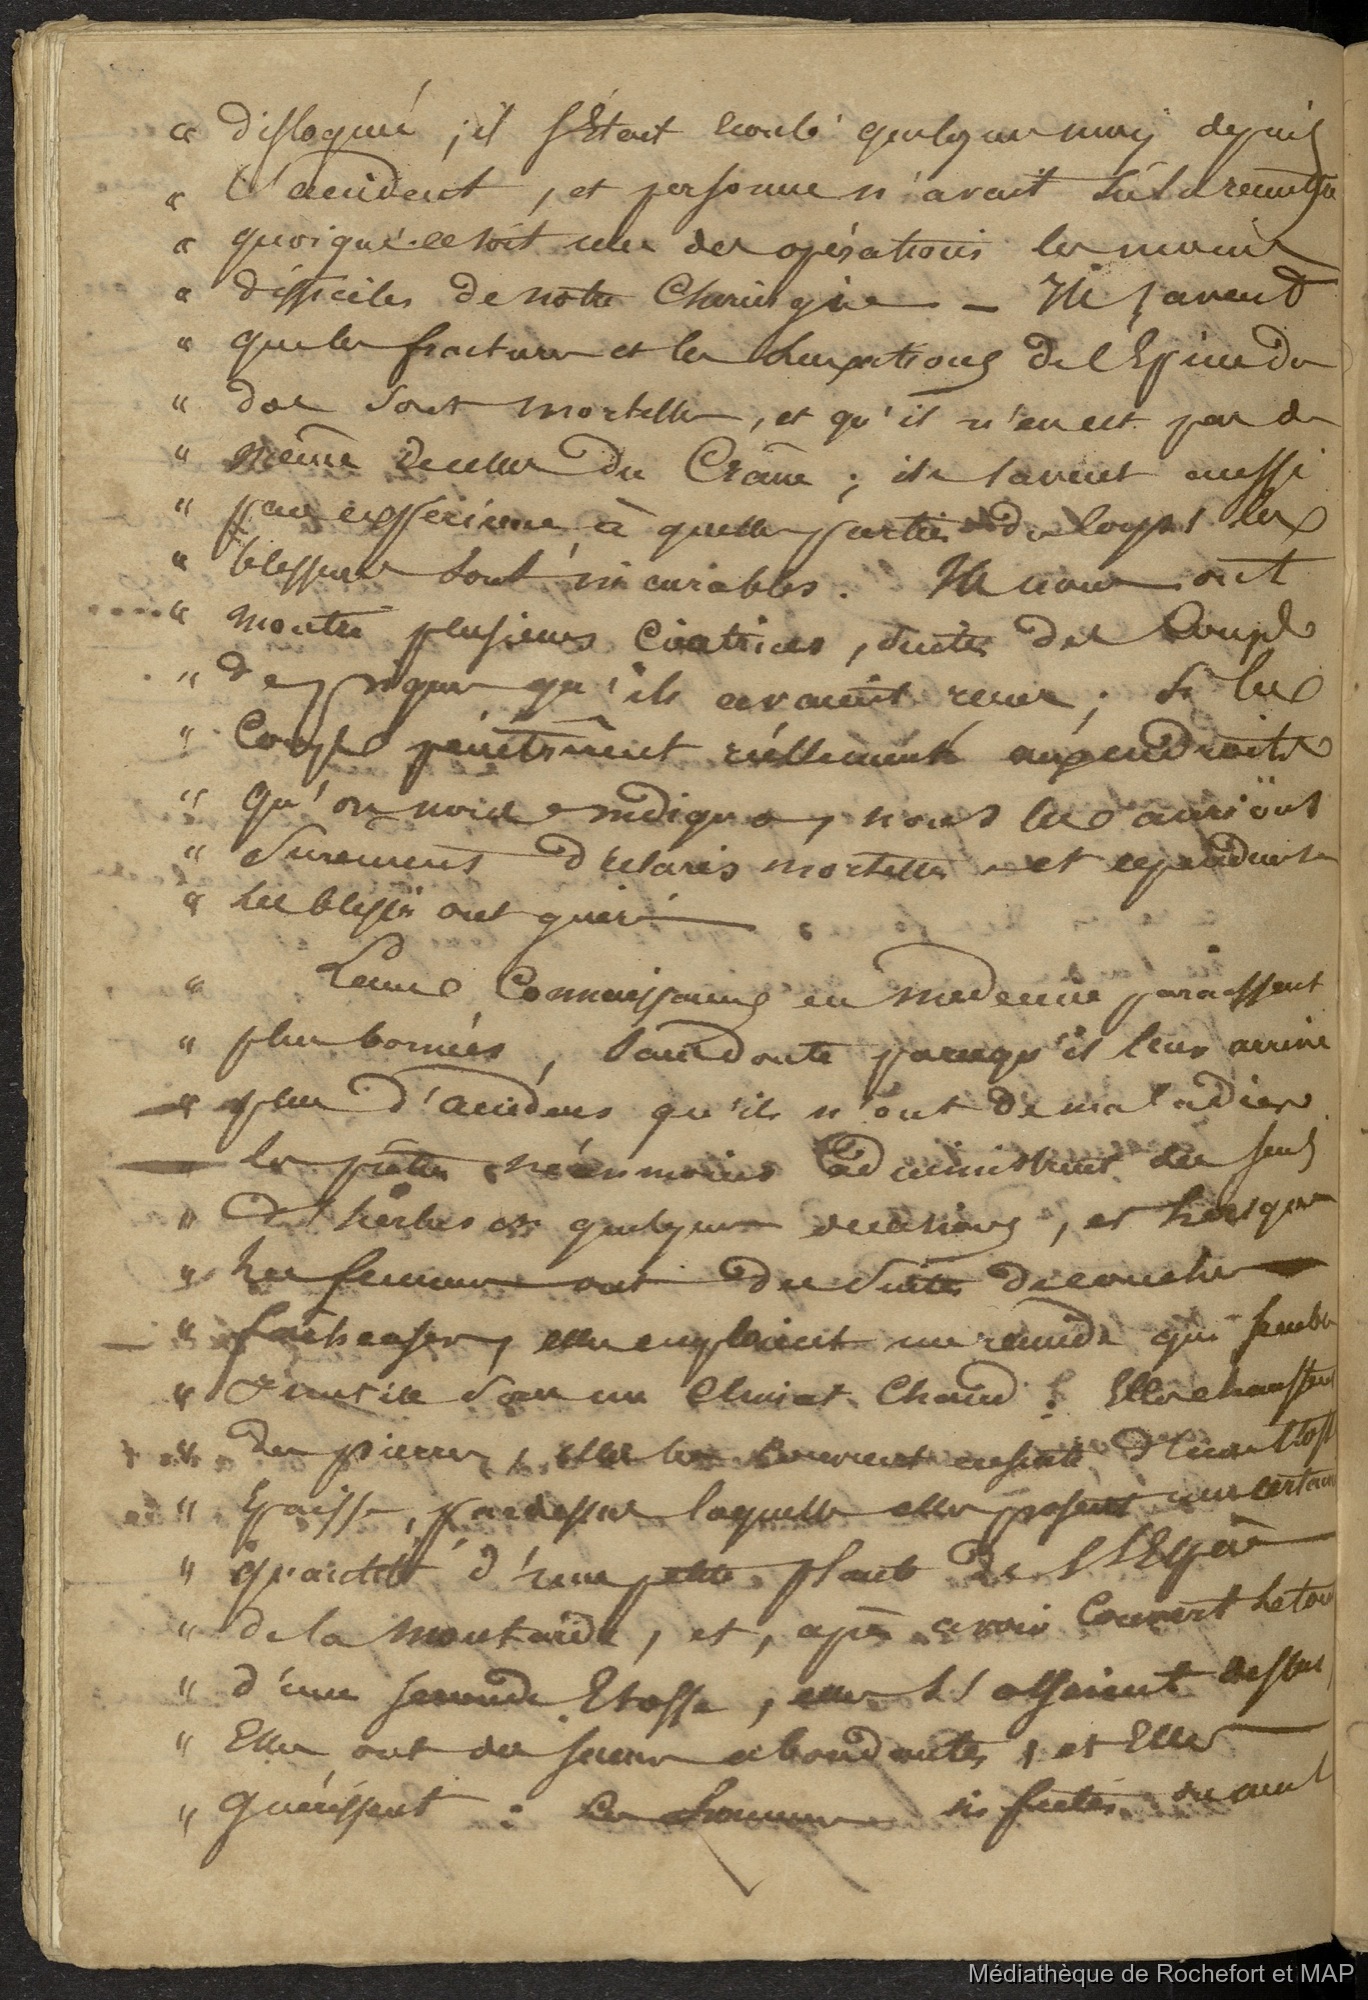 « disloquée ; il s'Etait ecoulé quelques mois depuis
« l'accident, et personne n'avait sû la remettre
« quoique ce soit une des opérations les moins
« difficiles de notre Chirurgie — Ils savent
« que les fractures et les luxations de l'Epine du
« dos sont mortelles, et qu'il n'en est pas de
« même de celles du Crâne ; ils savent aussi
« par expérience à quelles parties du Corps les
« blessures sont incurables. Ils nous ont
« montré plusieurs Cicatrices, suites des Coups
« de piques qu'ils avaient reçus ; si les
« Coups pénétrèrent réellement aux endroits
« qu'on nous indiqua, nous les aurions
« surement déclarés mortels et cependant
« les blessés ont guéri
« Leurs Connaissances en médecine paraissent
« plus bornées, sans doute parcequ'il leur arrive
« plus d'accidens qu'ils n'ont de maladies
les prêtres néanmoins administrent des sucs
« d'herbes en quelques occasions, et lorsque
« les femmes ont des suites de couches
« facheuses, elles emploient un remède qui semble
« inutile dans un Climat Chaud : Elles chauffent
« des pierres, elles les couvrent ensuite d'une Etoffe
« Epaisse, pardessus laquelle elles posent une certaine
« quantité d'une petite plante de l'Espèce
« de la moutarde, et, après avoir Couvert le tout
« d'une seconde Etoffe, elles s'asseient dessus
« Elles ont des sueurs abondantes, et Elles
« guérissent : Les hommes infectés du mal
Médiathèque de Rochefort et MAP